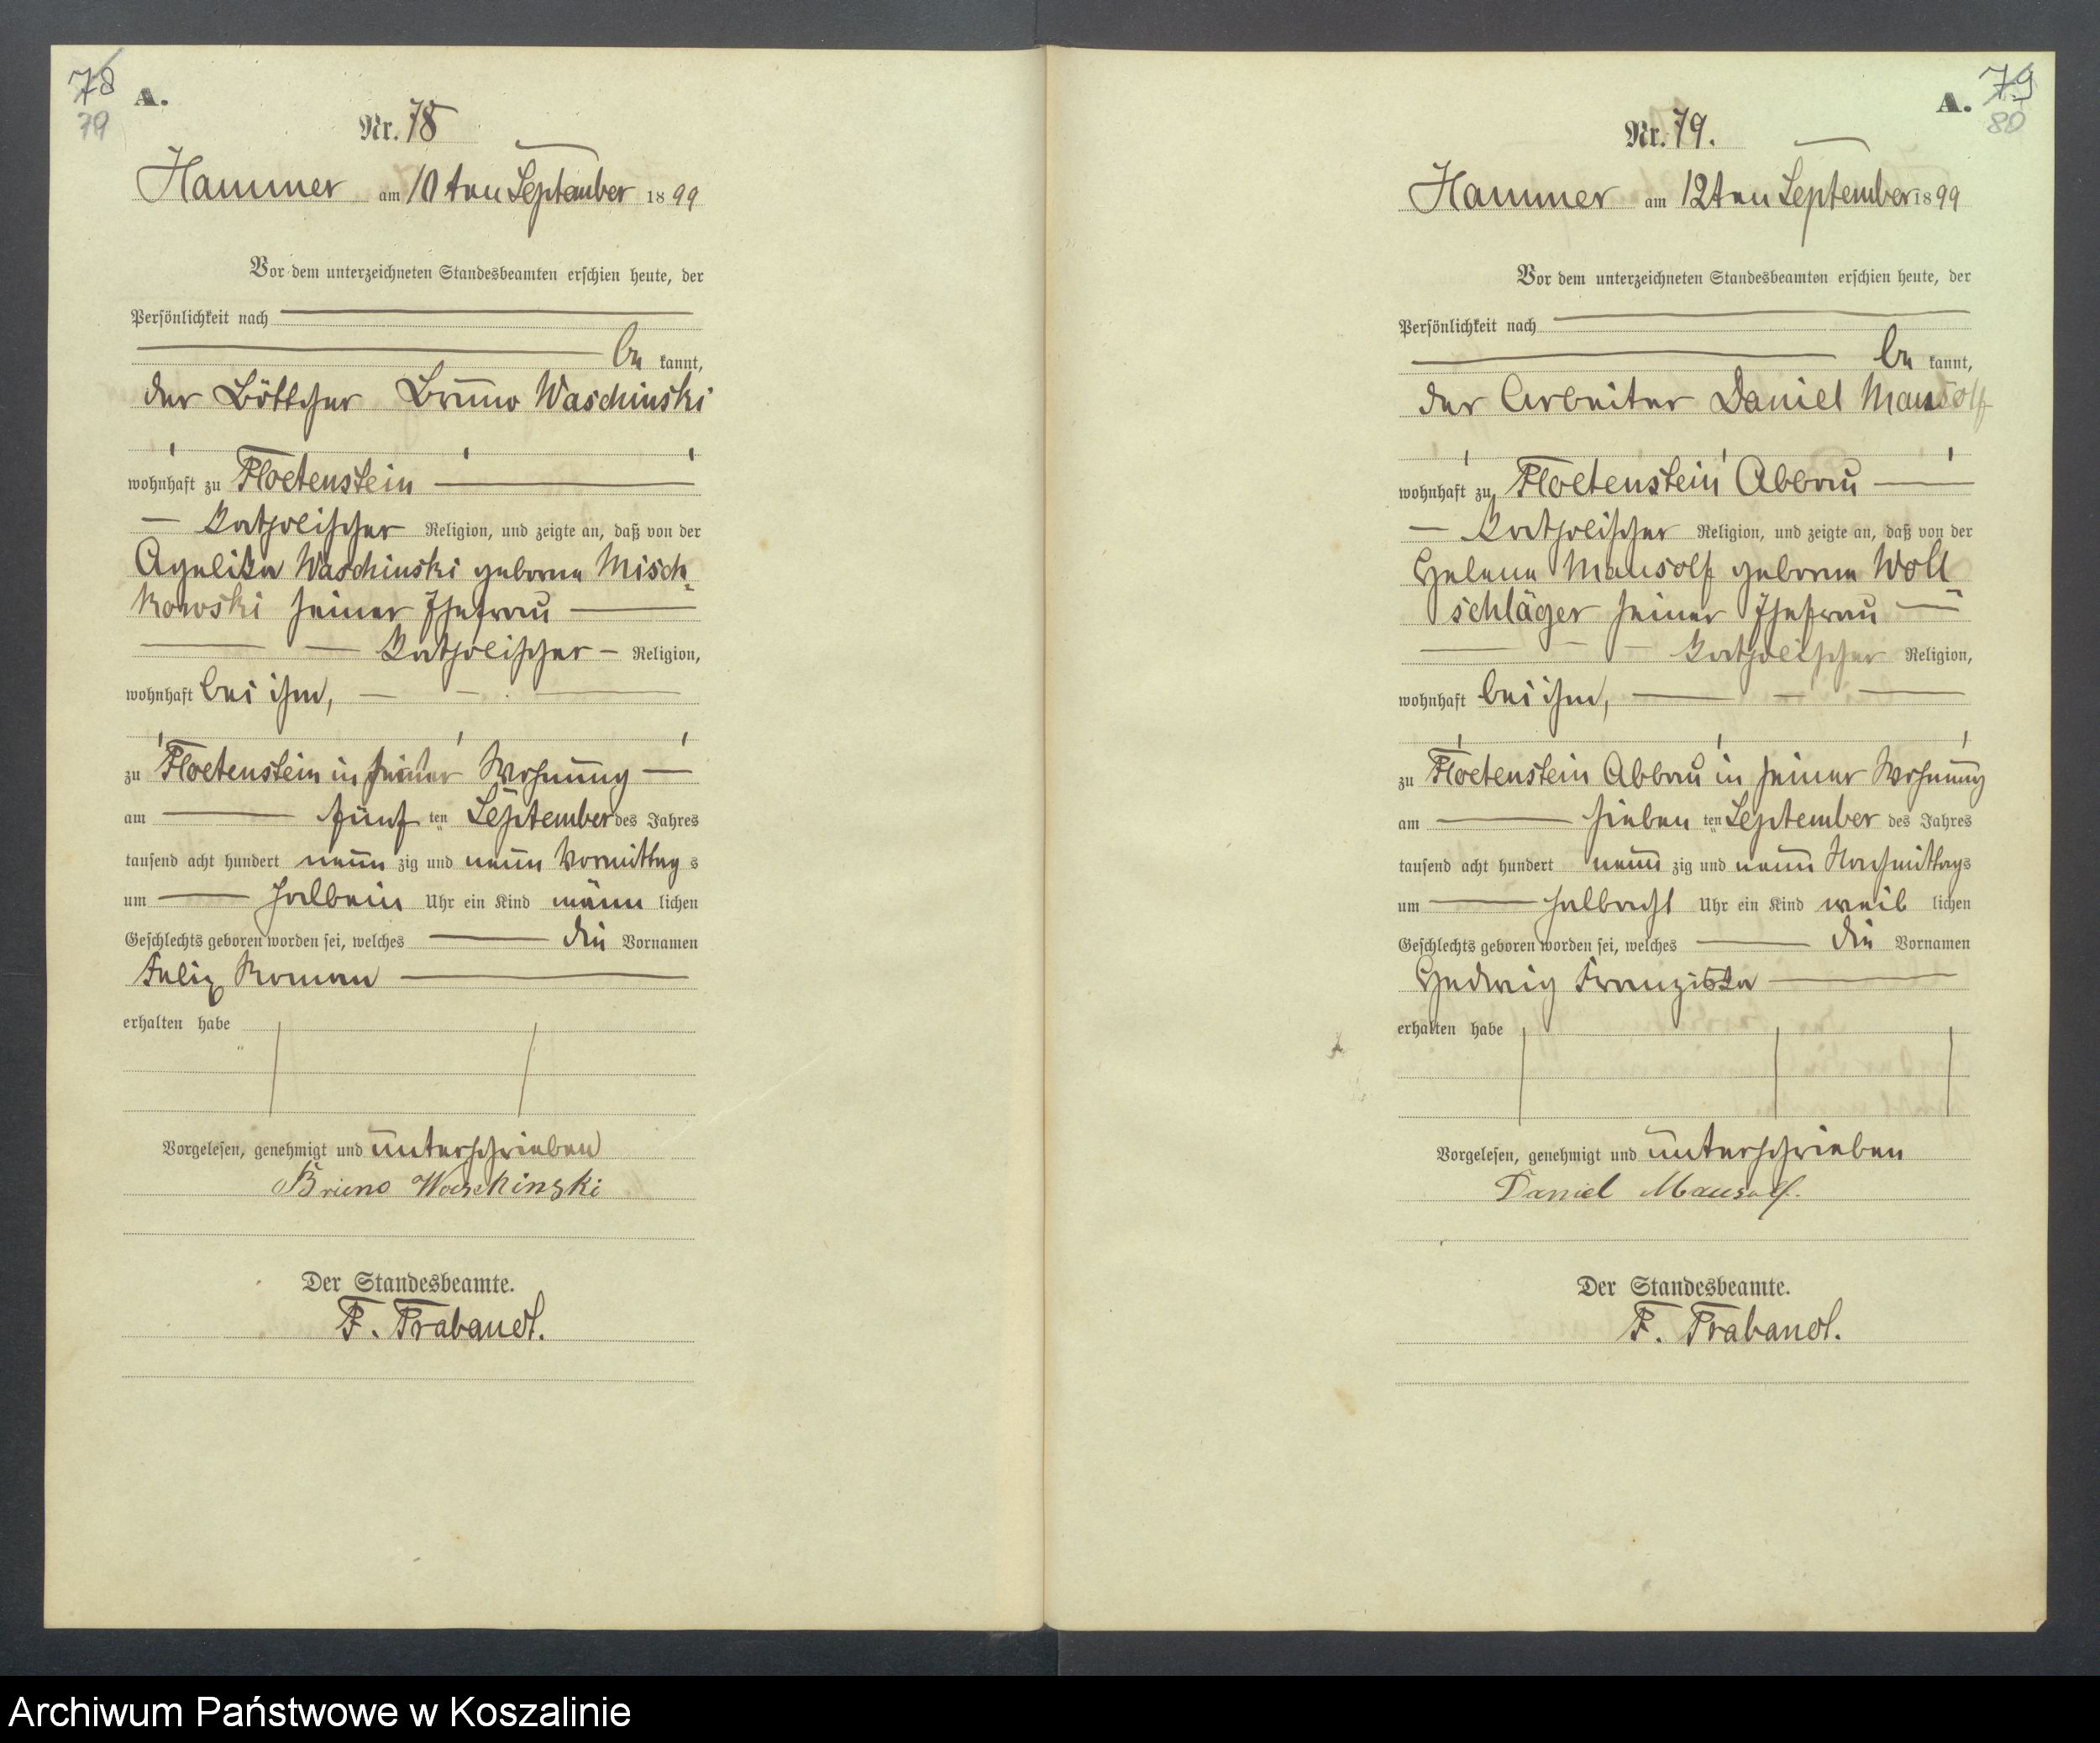 78
79
A.
Nr. 78
Hammer am 10ten September 1899
Vor dem unterzeichneten Standesbeamten erschien heute, der
Persönlichkeit nach
be kannt,
der Böttcher Bruno Waschinski
wohnhaft zu Floetenstein
katholischer Religion, und zeigte an, daß von der
Agelika Waschinski geborne Misch-
kowski seiner Ehefrau
katholischer Religion,
wohnhaft bei ihm,
zu Floetenstein in seiner Wohnung
am fünf ten September des Jahres
tausend acht hundert neun zig und neun Vormittag s
um halbein Uhr ein Kind männ lichen
Geschlechts geboren worden sei, welches die Vornamen
Felix Roman
erhalten habe
Vorgelesen, genehmigt und unterschrieben
Bruno Waschinski
Der Standesbeamte.
F. Trabandt.
A.
79
80
Nr. 79.
Hammer am 12ten September 1899
Vor dem unterzeichneten Standesbeamten erschien heute, der
Persönlichkeit nach
be kannt,
der Arbeiter Daniel Mausolf
wohnhaft zu Floetenstein Abbau
katholischer Religion, und zeigte an, daß von der
Helene Mausolf geborne Woll
schläger seiner Ehefrau
katholischer Religion,
wohnhaft bei ihm,
zu Floetenstein Abbau in seiner Wohnung
am sieben ten September des Jahres
tausend acht hundert neun zig und neun Nachmittags
um halbacht Uhr ein Kind weib lichen
Geschlechts geboren worden sei, welches die Vornamen
Hedwig Franziska
erhalten habe
Vorgelesen, genehmigt und unterschrieben
Daniel Mausolf.
Der Standesbeamte.
F. Trabandt.
Archiwum Państwowe w Koszalinie